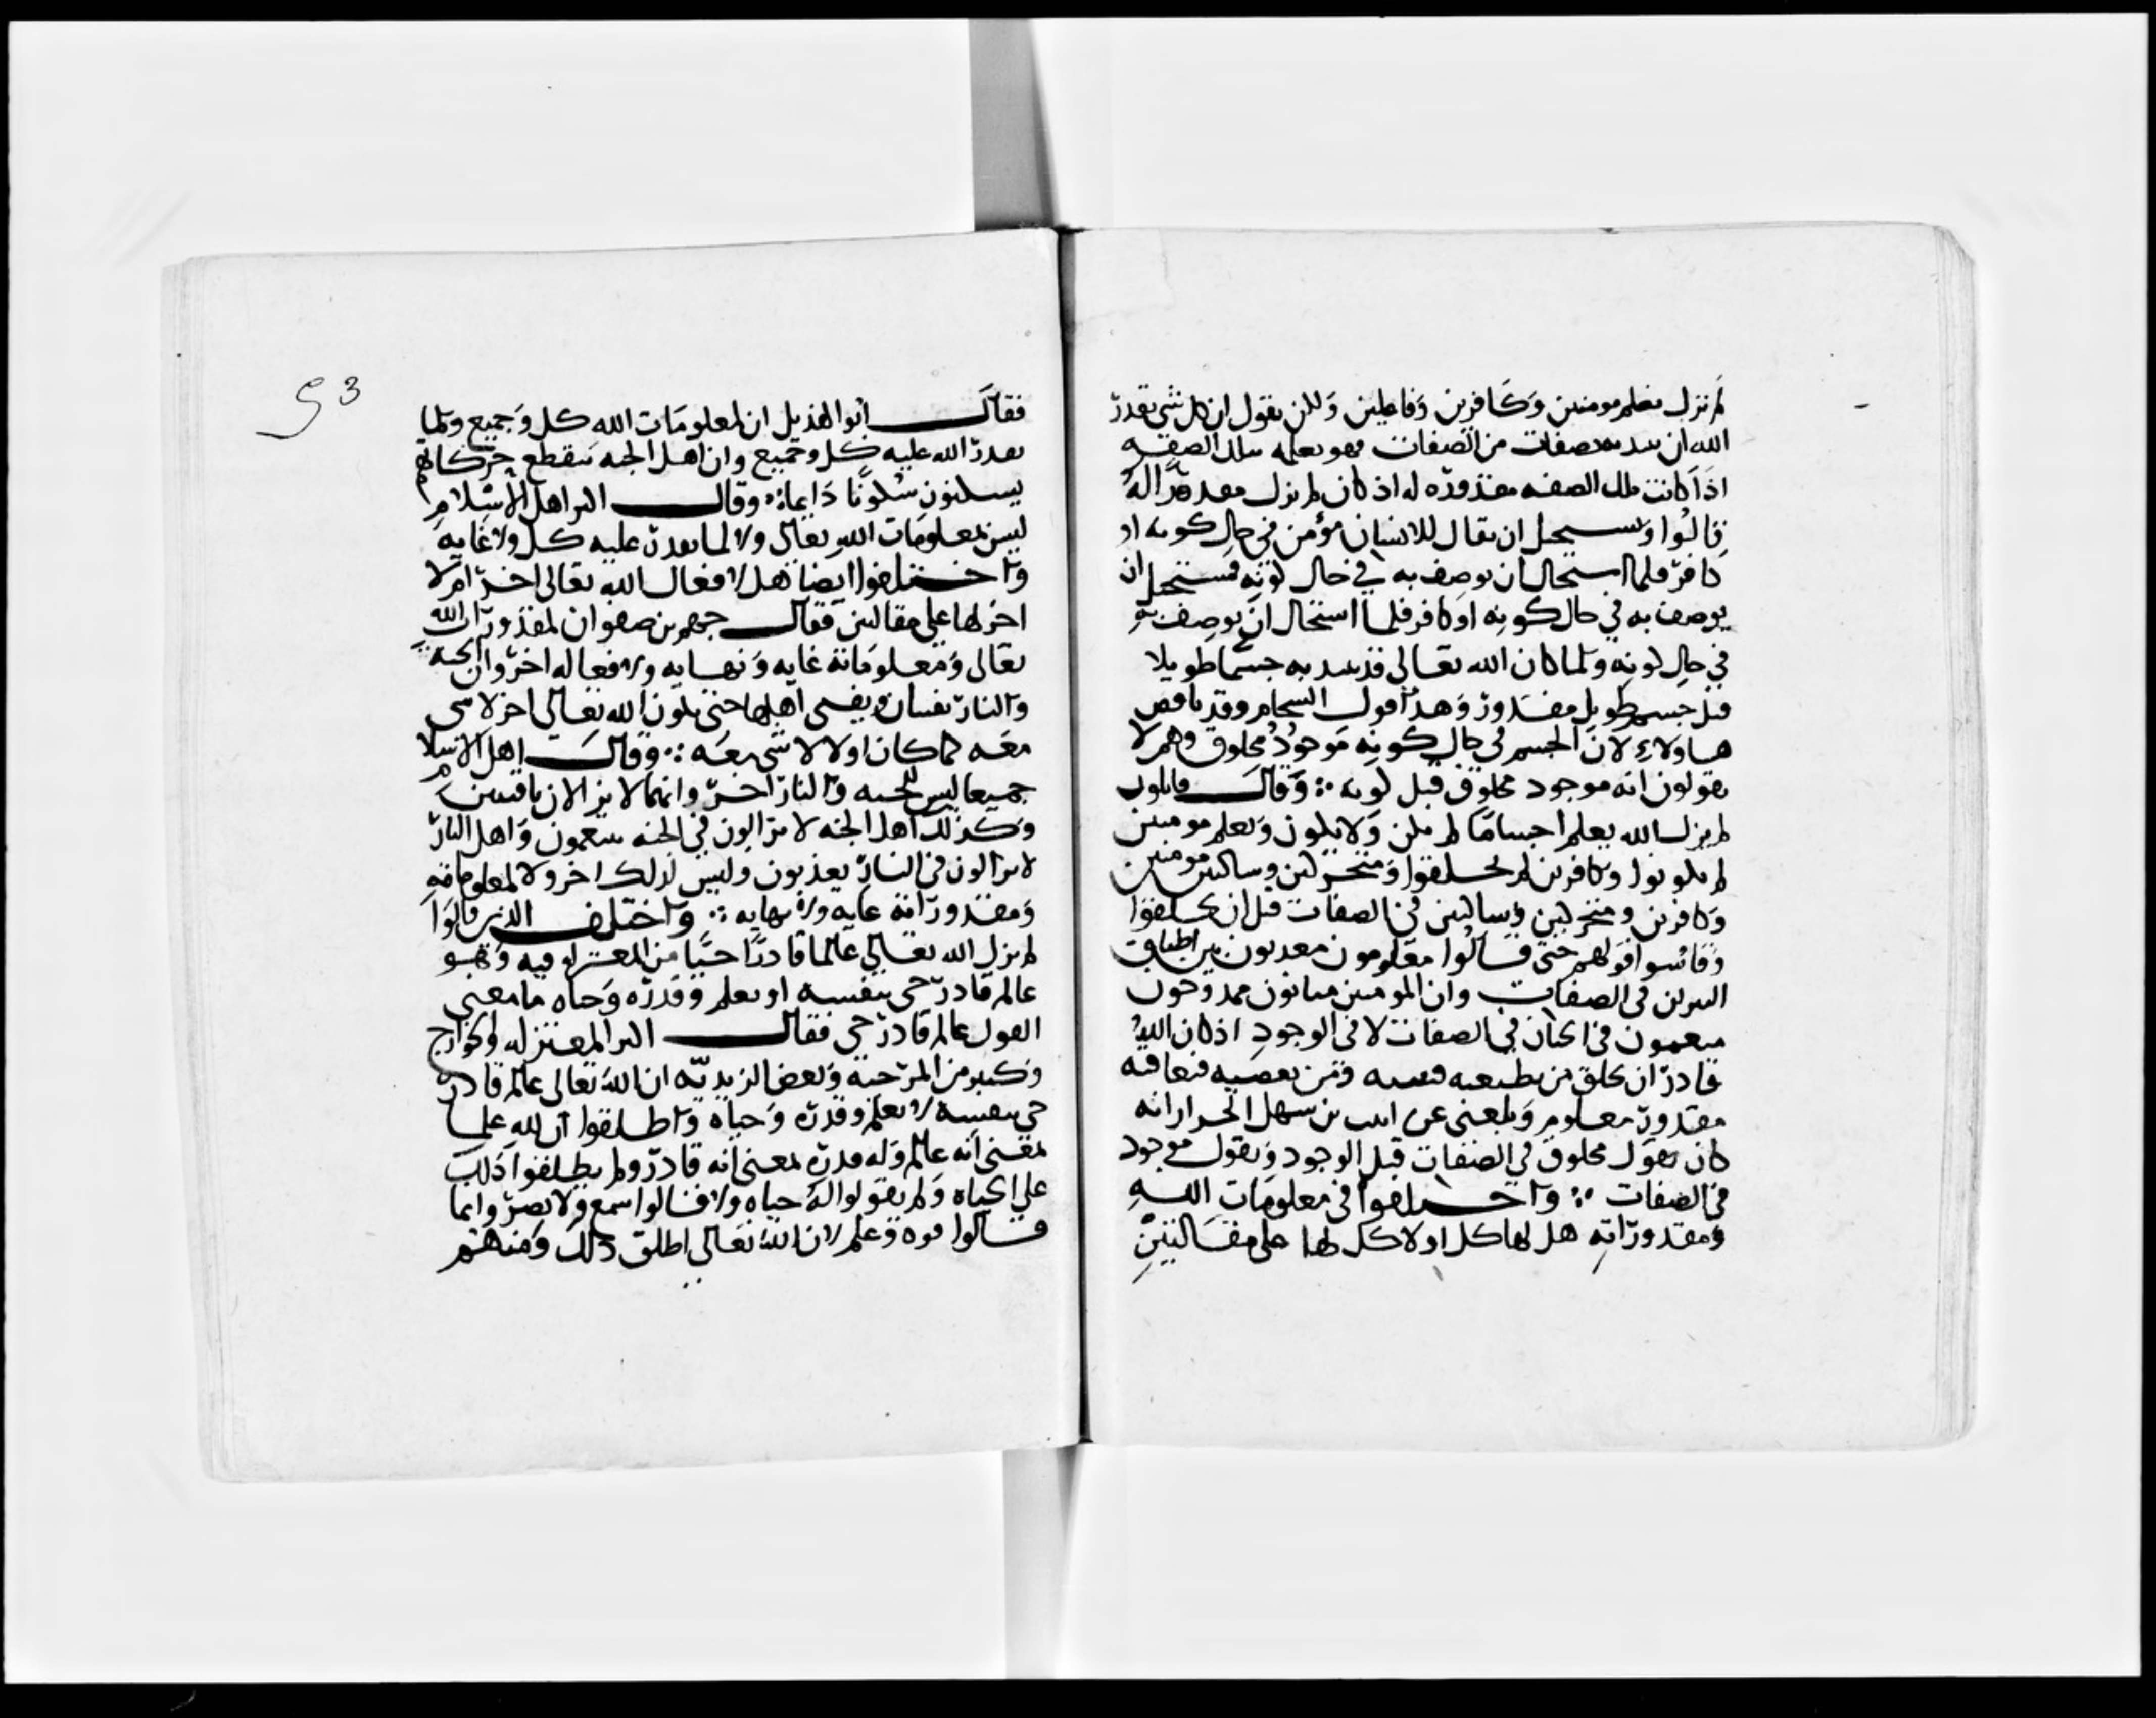 لم نزل نعلم مومنين وكافرين وفاعلين ولكن نقول ان كل شي يقدر
الله ان يبديه بصفات من الصفات فهو يعلمه بتلك الصفه
اذا كانت تلك الصفه مقدوره له اذ كان لم يزل مقدورا له
قالوا ويستحيل ان يقال للانسان مؤمن في حال كونه او
كافر فلما استحال ان يوصف به في حال كونه فيستحيل ان
يوصف به في حال كونه او كافر فلما استحال ان يوصف به
في حال كونه ولما كان الله تعالى قد يبديه جسما طويلا
قبل جسم طويل مقدور وهذا قول الشحام وقد ناقض
هاولاء لان الجسم في حال كونه موجود مخلوق وهم لا
يقولون انه موجود مخلوق قبل كونه ؞ وقال قايلون
لم يزل الله يعلم اجساما لم تكن ولا تكون ويعلم مومنين
لم يكونوا وكافرين لم يخلقوا ومتحركين وساكنين مومنين
وكافرين ومتحركين وساكنين في الصفات قبل ان يخلقوا
وقاسوا قولهم حتى قالوا معلومون معذبون بين اطباق
النيران في الصفات وان المومنين مثابون ممدوحون
منعمون في الجنان في الصفات لا في الوجود اذ كان الله
قادر ان يخلق من يطيعه فيثيبه ومن يعصيه فيعاقبه
مقدور معلوم وبلغني عن انيب بن سهل الخراز انه
كان يقول مخلوق في الصفات قبل الوجود ويقول موجود
في الصفات ؞ واختلفوا في معلومات الله
ومقدوراته هل لها كل او لا كل لها على مقالتين
فقال ابو الهذيل ان لمعلومات الله كل وجميع ولما
يقدر الله عليه كل وجميع وان اهل الجنه تنقطع حركاتهم
يسكنون سكونا دايما ؞ وقال اكثر اهل الاسلام
ليس لمعلومات الله تعالى ولا لما يقدر عليه كل ولا غايه
واختلفوا ايضا هل لافعال الله تعالى اخر ام لا
اخر لها على مقالتين فقال جهم بن صفوان لمقدورات الله
تعالى ومعلوماته غايه ونهايه ولافعاله اخر وان الجنه
والنار تفنيان ويفنى اهلها حتى يكون الله تعالى اخر لا شي
معه كما كان اولا لا شي معه ؞ وقال اهل الاسلام
جميعا ليس للجنه والنار اخر وانهما لا يزالان باقيتين
وكذلك اهل الجنه لا يزالون في الجنه يتنعمون واهل النار
لا يزالون في النار يعذبون وليس لذلك اخر ولا لمعلوماته
ومقدوراته غايه ولا نهايه ؞ واختلف الذين قالوا
لم يزل الله تعالى عالما قادرا حيا من المعتزله فيه وهو
عالم قادر حي بنفسه او بعلم وقدره وحياه ما معنى
القول عالم قادر حي فقال اكثر المعتزله والخوارج
وكثير من المرجئه وبعض الزيديه ان الله تعالى عالم قادر
حي بنفسه لا بعلم وقدره وحياه واطلقوا ان لله علما
بمعنى انه عالم وله قدره بمعنى انه قادر ولم يطلقوا ذلك
على الحياه ولم يقولوا له حياه ولا قالوا سمع ولا بصر وانما
قالوا قوه وعلم لان الله تعالى اطلق ذلك ومنهم